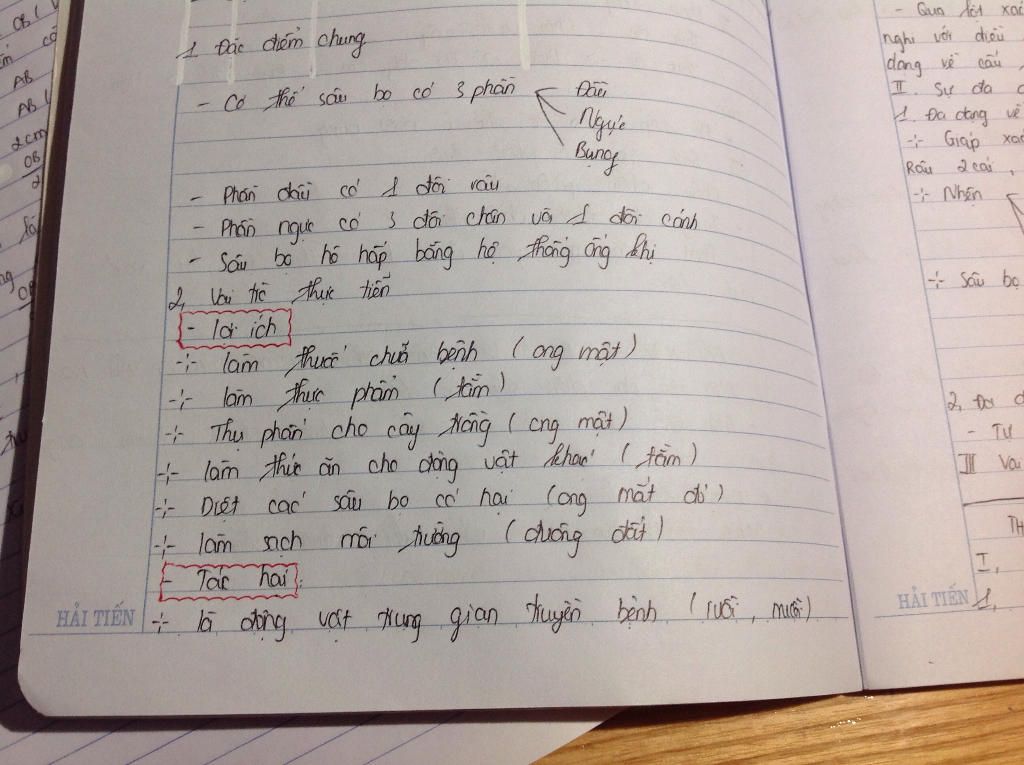 OB (
AB
AB (
2cm
OB
2
OB
1 Đặc điểm chung
- Cơ thể sâu bọ có 3 phần Đầu
Ngực
Bụng
- Phần đầu có 1 đôi râu
- Phần ngực có 3 đôi chân và 1 đôi cánh
- Sâu bọ hô hấp bằng hệ thống ống khị
2, Vai trò thực tiễn
- lợi ích
-:- làm thuốc chuẵ bệnh (ong mật)
-:- làm thực phẩm (tằm)
-:- Thụ phấn cho cây trồng (ong mật)
-:- làm thức ăn cho động vật khác (tằm)
-:- Diệt các sâu bọ có hại (ong mắt đỏ)
-:- làm sạch môi trường (đuông đất)
- Tác hại:
HẢI TIẾN
-:- là động vật trung gian truyền bệnh (ruồi, muỗi)
- Qua
nghi với điều
dạng về cấu
II. Sự đa
1. Đa dạng về
-:- Giáp xác
Râu 2 cái,
-:- Nhện
-:- Sâu bọ
2, Đa
- Tự
III Vai
TH
I,
HẢI TIẾN
1,